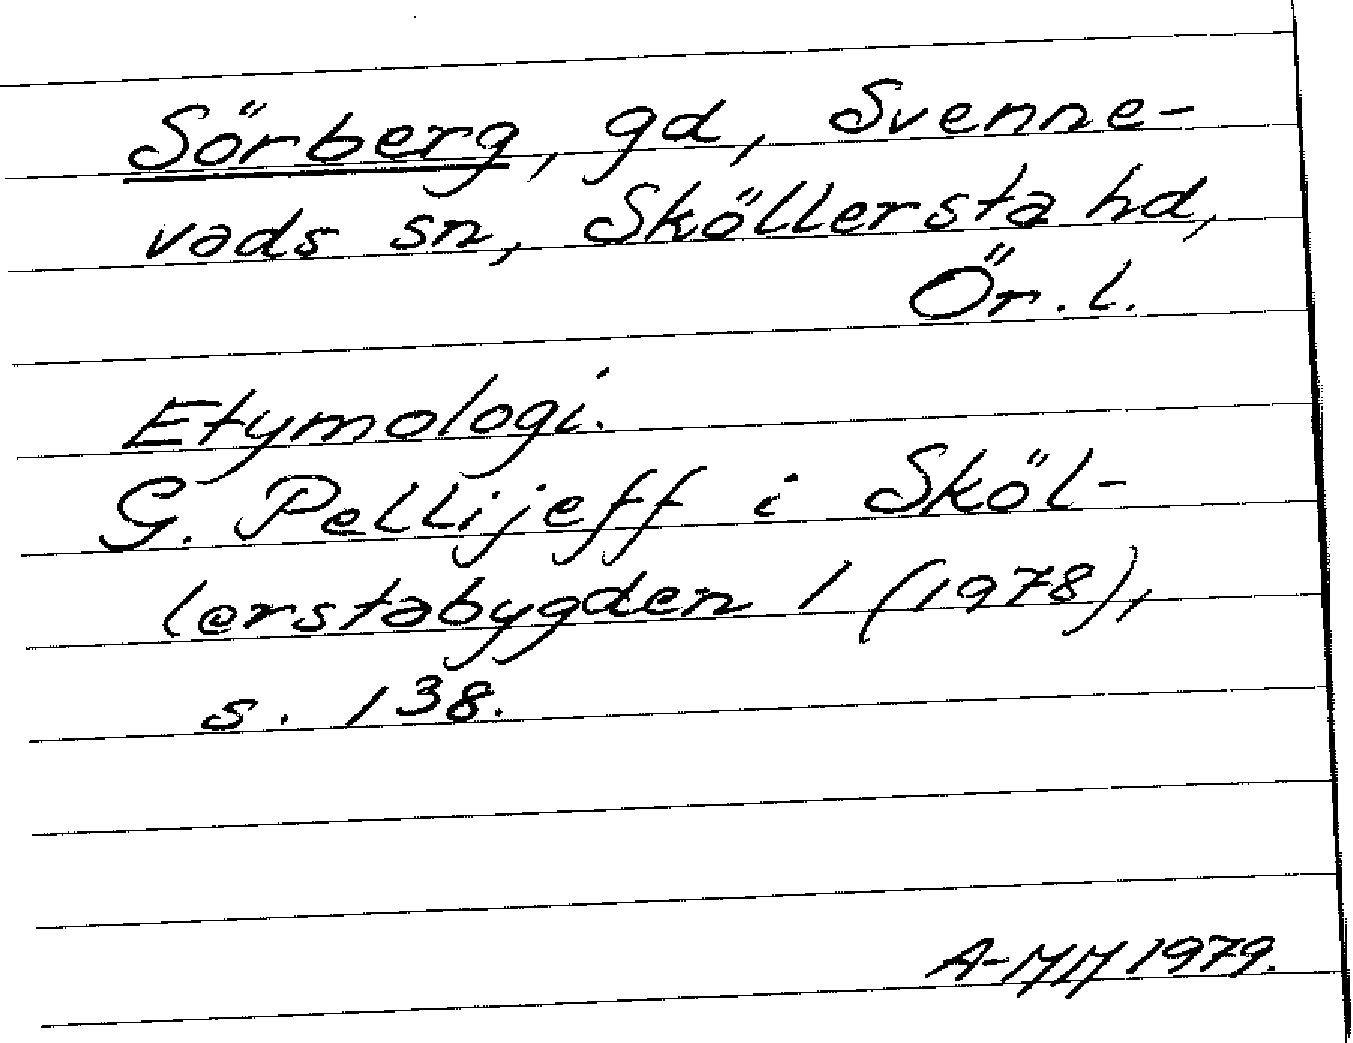 Sörberg, gd, Svenne-
vads sn, Sköllersta hd,
Ör. l.
Etymologi.
G. Pellijeff i Sköl-
lerstabygden 1 (1978),
s. 138.
A-MM 1979.